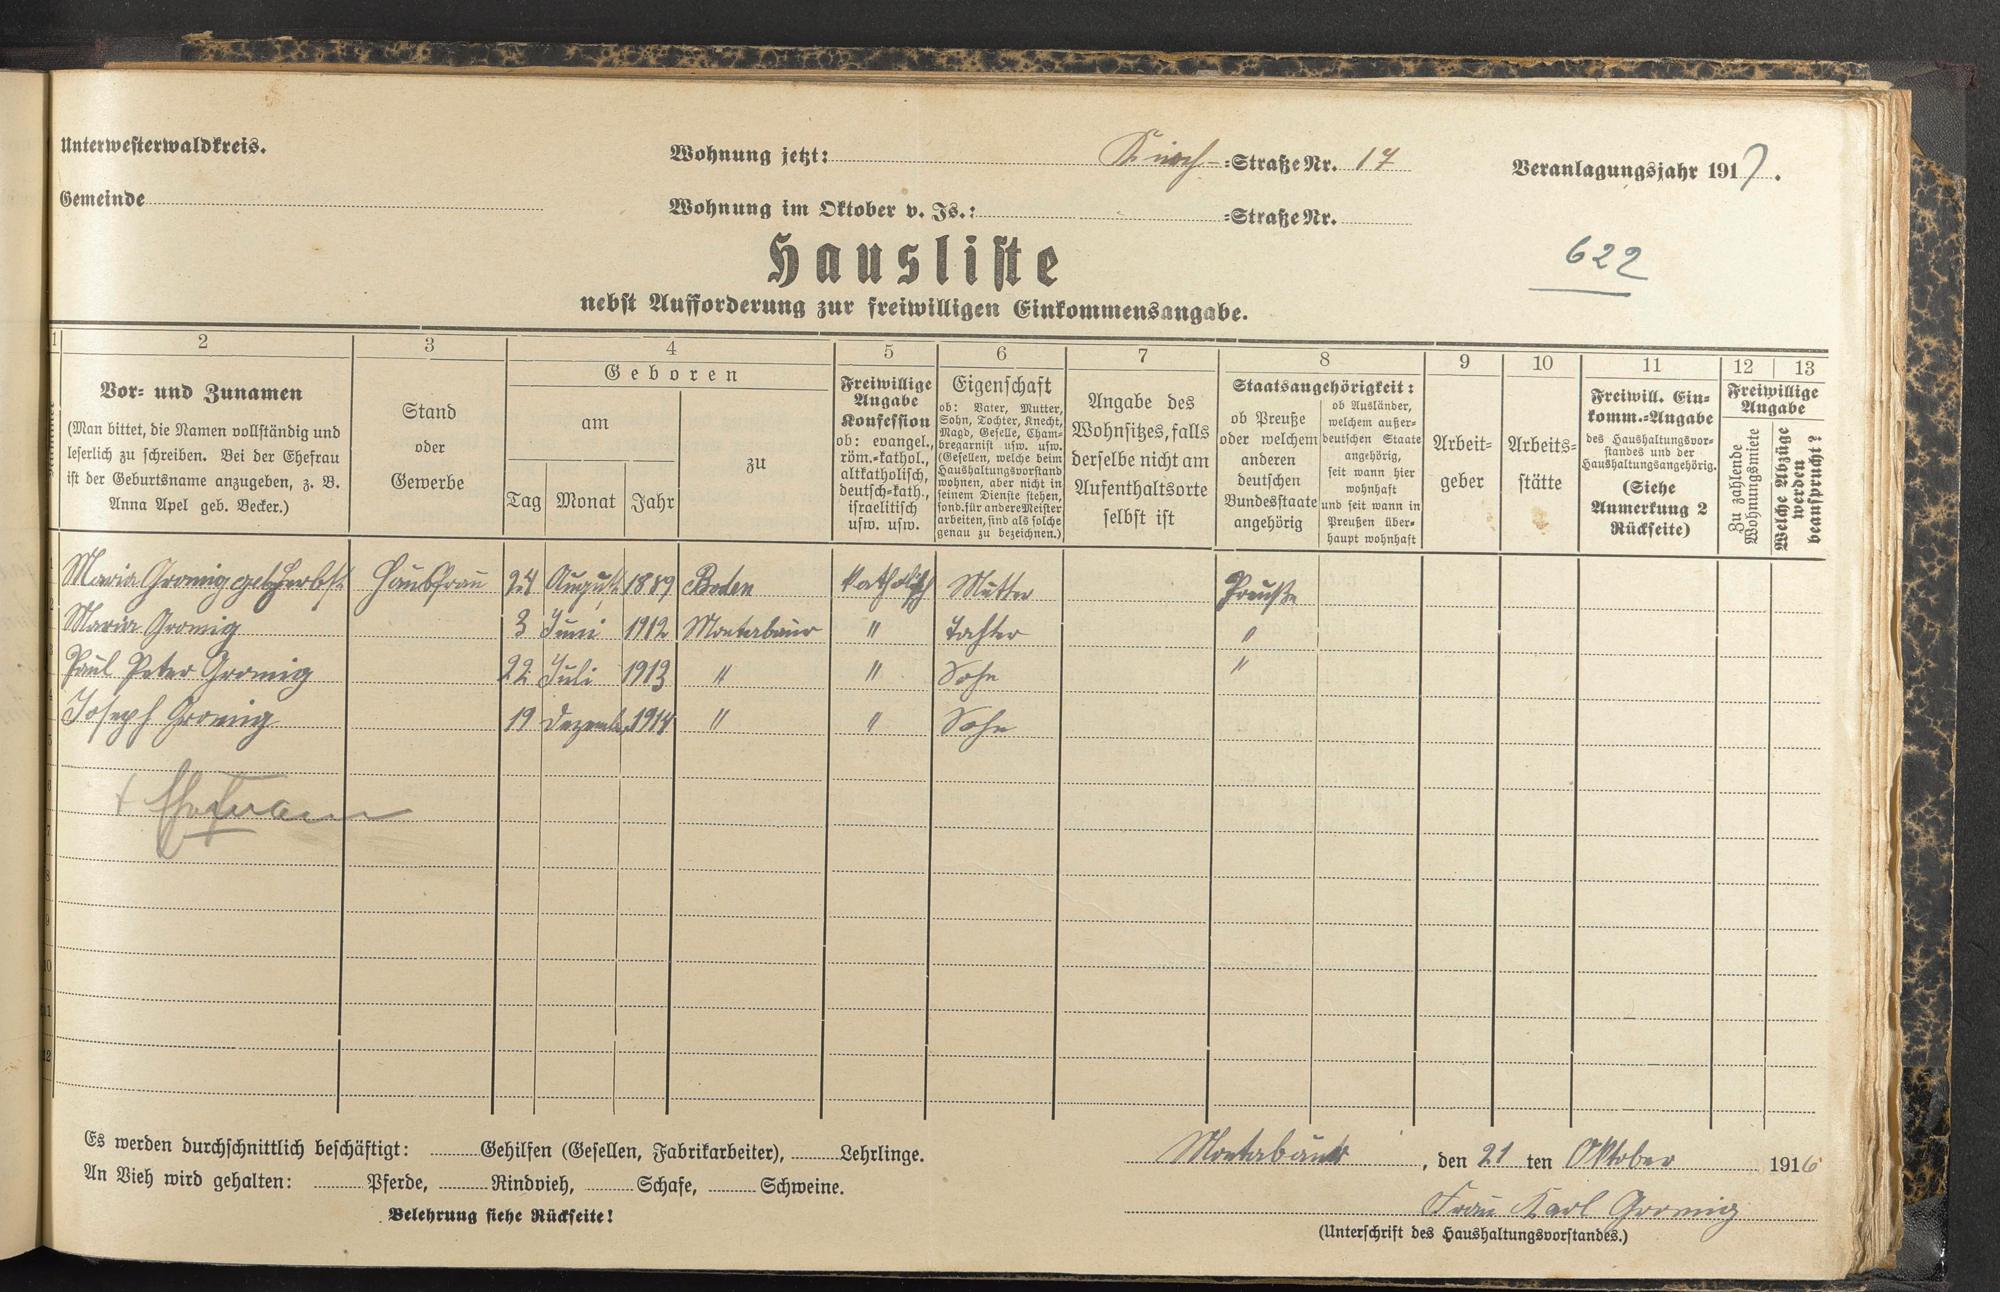 Unterwesterwaldkreis.
Gemeinde
Wohnung jetzt: Kirch- =Straße Nr. 17
Wohnung im Oktober v. Js.: =Straße Nr.
Veranlagungsjahr 1917.
622
Hausliste
nebst Aufforderung zur freiwilligen Einkommensangabe.
1 2 3 4 5 6 7 8 9 10 11 12 13
Nummer
Vor- und Zunamen
(Man bittet, die Namen vollständig und
leserlich zu schreiben. Bei der Ehefrau
ist der Geburtsname anzugeben, z. B.
Anna Apel geb. Becker.)
Stand
oder
Gewerbe
Geboren
am
Tag Monat Jahr
zu
Freiwillige
Angabe
Konfession
ob: evangel.,
röm.-kathol.,
altkatholisch,
deutsch-kath.,
israelitisch
usw. usw.
Eigenschaft
ob: Vater, Mutter,
Sohn, Tochter, Knecht,
Magd, Geselle, Cham-
bregarnist usw. usw.
(Gesellen, welche beim
Haushaltungsvorstand
wohnen, aber nicht in
seinem Dienste stehen,
sond. für andere Meister
arbeiten, sind als solche
genau zu bezeichnen.)
Angabe des
Wohnsitzes, falls
derselbe nicht am
Aufenthaltsorte
selbst ist
Staatsangehörigkeit:
ob Preuße
oder welchem
anderen
deutschen
Bundesstaate
angehörig
ob Ausländer,
welchem außer-
deutschen Staate
angehörig,
seit wann hier
wohnhaft
und seit wann in
Preußen über-
haupt wohnhaft
Arbeit-
geber
Arbeits-
stätte
Freiwill. Ein-
komm.-Angabe
des Haushaltungsvor-
standes und der
Haushaltungsangehörig.
(Siehe
Anmerkung 2
Rückseite)
Freiwillige
Angabe
Zu zahlende
Wohnungsmiete
Welche Abzüge
werden
beansprucht?
1 Maria Gromig geb. Herbst Hausfrau 24 August 1889 Boden katholisch Mutter Preuße
2 Maria Gromig 3 Juni 1912 Montabaur " Tochter "
3 Paul Peter Gromig 22 Juli 1913 " " Sohn "
4 Joseph Gromig 19 Dezemb. 1914 " " Sohn
5
6
7
8
9
10
11
12
Es werden durchschnittlich beschäftigt: Gehilfen (Gesellen, Fabrikarbeiter), Lehrlinge.
An Vieh wird gehalten: Pferde, Rindvieh, Schafe, Schweine.
Belehrung siehe Rückseite!
Montabaur, den 21 ten Oktober 1916
Frau Karl Gromig
(Unterschrift des Haushaltungsvorstandes.)